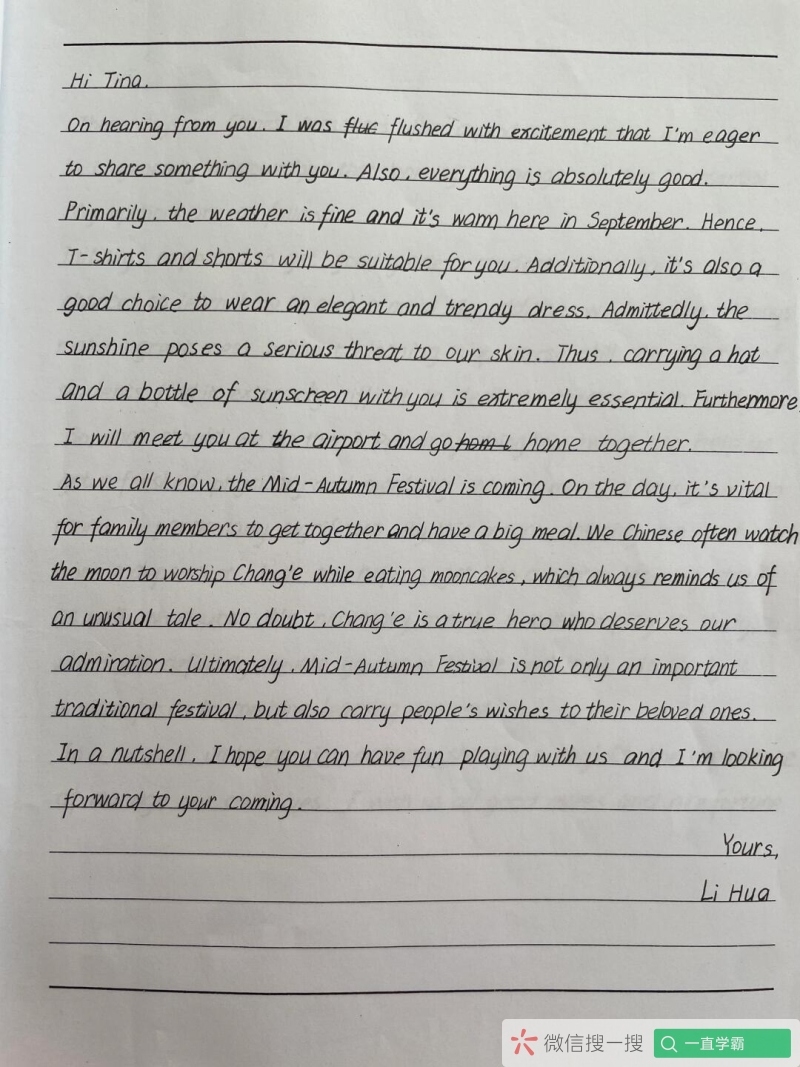 Hi Tina.
On hearing from you. I was fluc flushed with excitement that I'm eager
to share something with you. Also, everything is absolutely good.
Primarily, the weather is fine and it's warm here in September. Hence,
T-shirts and shorts will be suitable for you. Additionally, it's also a
good choice to wear an elegant and trendy dress. Admittedly, the
sunshine poses a serious threat to our skin. Thus, carrying a hat
and a bottle of sunscreen with you is extremely essential. Furthermore,
I will meet you at the airport and go hom t home together.
As we all know, the Mid-Autumn Festival is coming. On the day, it's vital
for family members to get together and have a big meal. We Chinese often watch
the moon to worship Chang'e while eating mooncakes, which always reminds us of
an unusual tale. No doubt, Chang'e is a true hero who deserves our
admiration. Ultimately, Mid-Autumn Festival is not only an important
traditional festival, but also carry people's wishes to their beloved ones.
In a nutshell, I hope you can have fun playing with us and I'm looking
forward to your coming.
Yours,
Li Hua
微信搜一搜 一直学霸